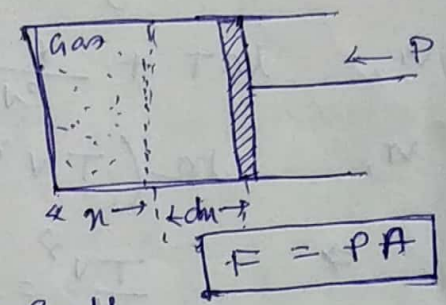 Gas
← P
x → ← dx →
F = PA